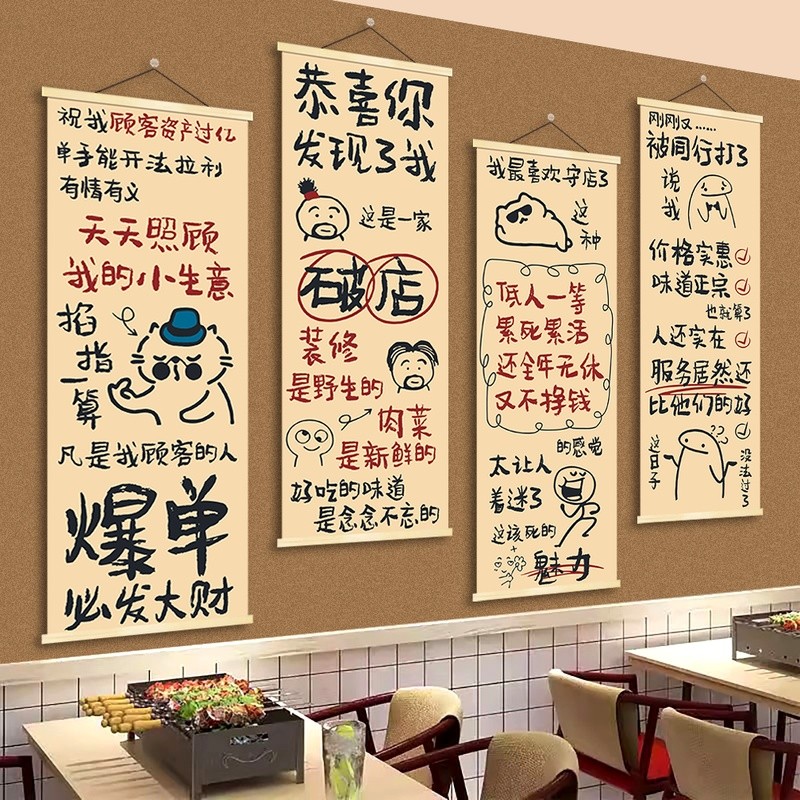 祝我顾客资产过亿
单手能开法拉利
有情有义
天天照顾
我的小生意
掐
指
一算
凡是我顾客的人
爆单
必发大财
恭喜你
发现了我
这是一家
破店
装修
是野生的
肉菜
是新鲜的
好吃的味道
是念念不忘的
我最喜欢守店了
这
种
低人一等
累死累活
还全年无休
又不挣钱
的感觉
太让人
着迷了
这该死的
魅力
刚刚又……
被同行打了
说
我
价格实惠
味道正宗
也就算了
人还实在
服务居然还
比他们的好
这日子
没法过了